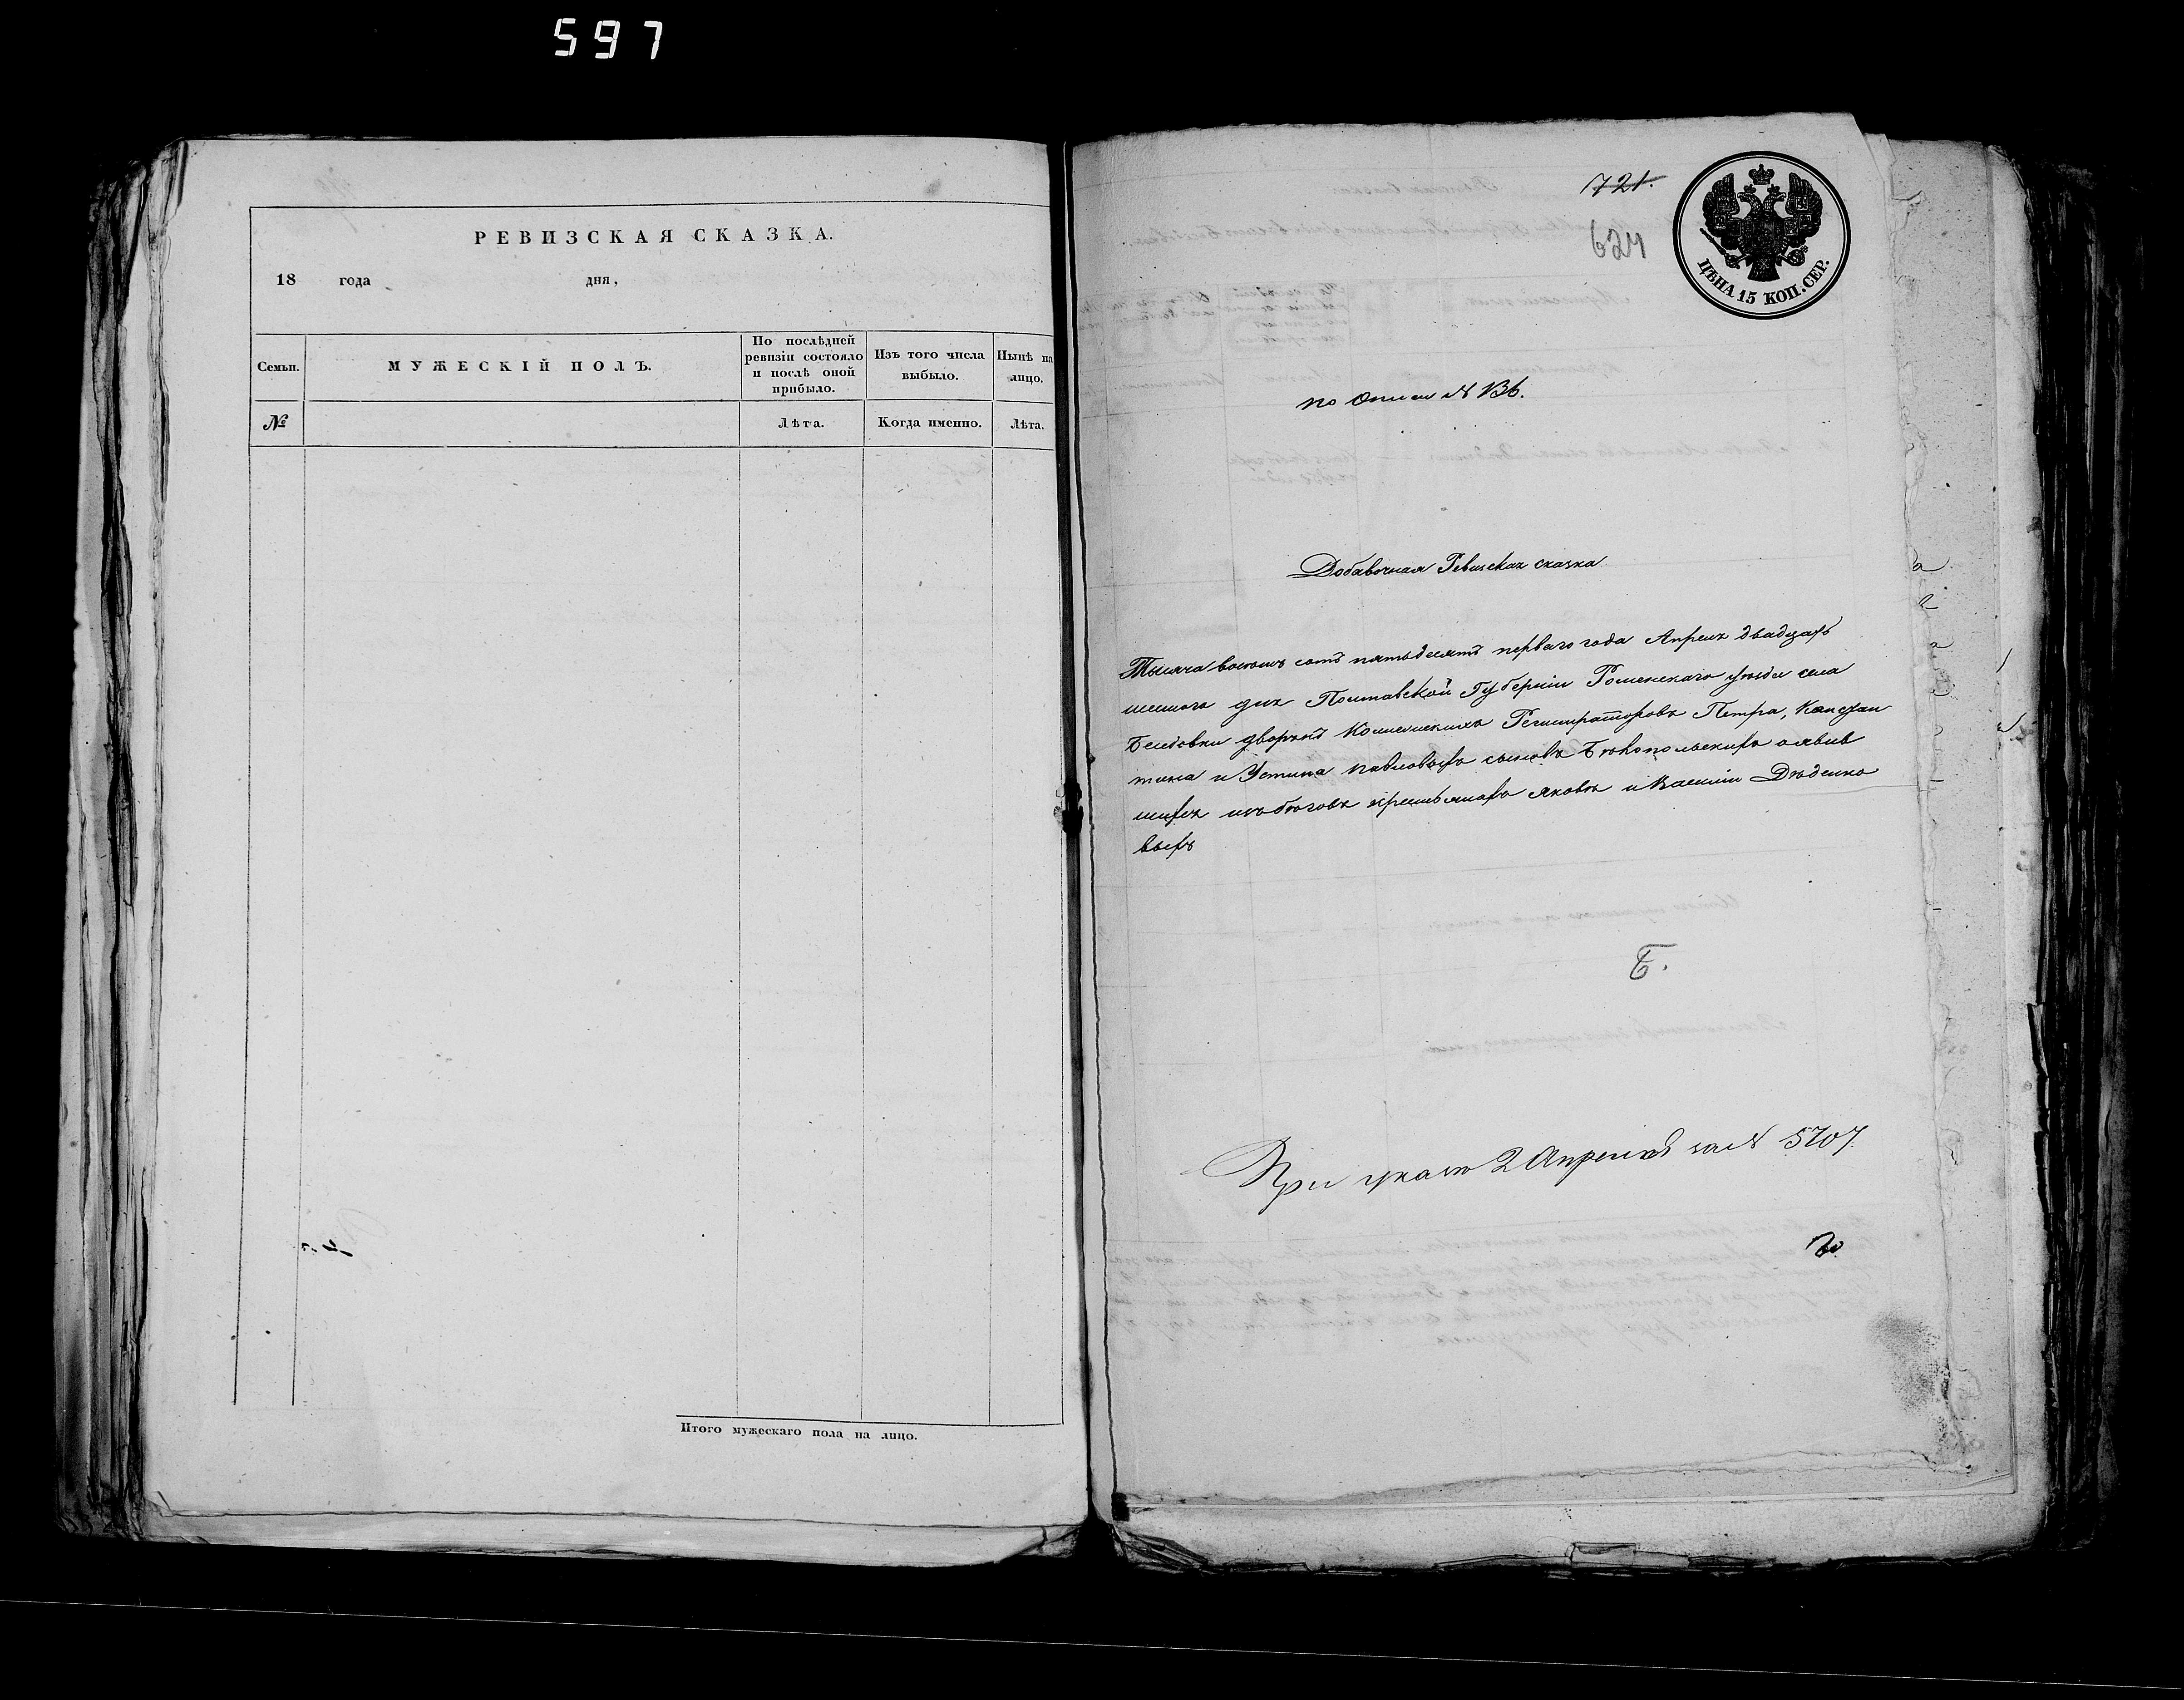 597
РЕВИЗСКАЯ СКАЗКА.
18 года дня,
Семьи.
МУЖЕСКІЙ ПОЛЪ.
По послѣдней
ревизіи состояло
и послѣ оной
прибыло.
Изъ того числа
выбыло.
Нынѣ на
лицо.
№
Лѣта.
Когда именно.
Лѣта.
Итого мужескаго пола на лицо.
721.
624
ЦѢНА 15 КОП. СЕР.
по Описи №
Добавочная Ревизская сказка
Тысяча восемь сотъ пятьдесятъ перваго года Апреля двадцать
дня Полтавской Губерніи Роменскаго уѣзда села
дворянъ Коллежскихъ Регистраторовъ Петра, Констан
тина и Устина Павловыхъ сыновъ явив
шихся изъ бѣговъ крестьянахъ Яковѣ и Василіи Дѣденко
выхъ
Б.
При указѣ 2 Апреля за № 5707.